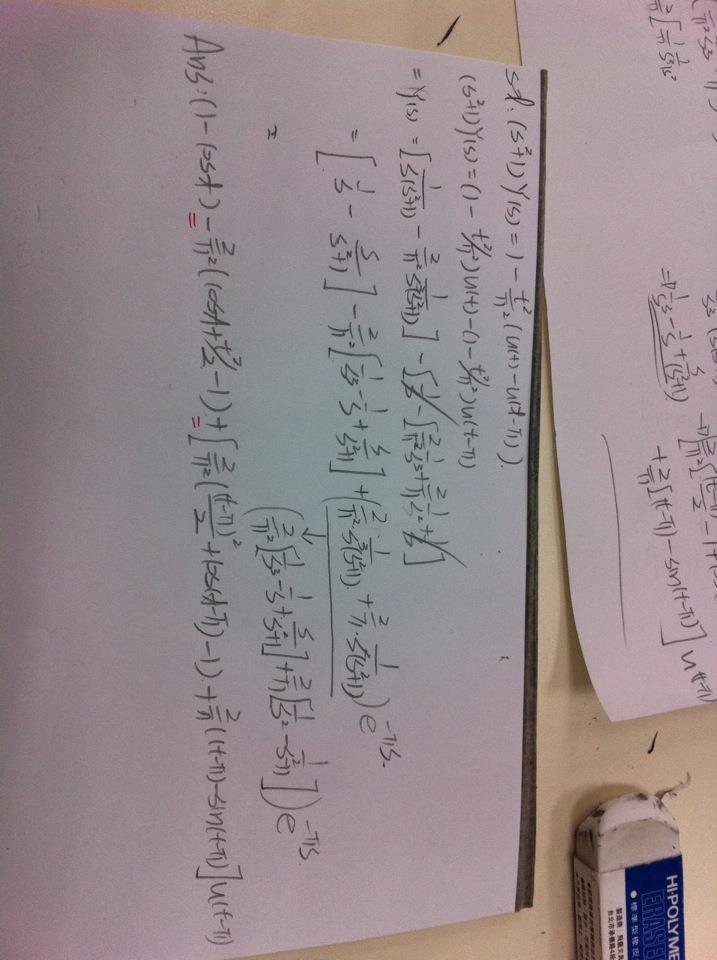 sol: (s²+1) Y(s) = 1 - t²/π² (u(t) - u(t-π)).
(s²+1) Y(s) = (1 - t²/π²) u(t) - (1 - t²/π²) u(t-π)
= Y(s) = [1/s(s²+1) - 2/π² 1/s³(s²+1)] - [1/s - [2/π² 1/s³ + 2/π 1/s² + 1/s]
= [1/s - s/s²+1] - 2/π² [1/s³ - 1/s + s/s²+1] + (2/π² · 1/s³(s²+1) + 2/π · 1/s²(s²+1)) e^-πs
(2/π² [1/s³ - 1/s + s/s²+1] + 2/π [1/s² - 1/s²+1]) e^-πs
=
Ans: (1 - cost) - 2/π² (cost + t²/2 - 1) + [2/π² ((t-π)²/2 + cos(t-π) - 1) + 2/π ((t-π) - sin(t-π)] u(t-π)
+ 2/π [(t-π) - sin(t-π)] u(t-π)
HI-POLYMER
ERASE
標準型橡皮